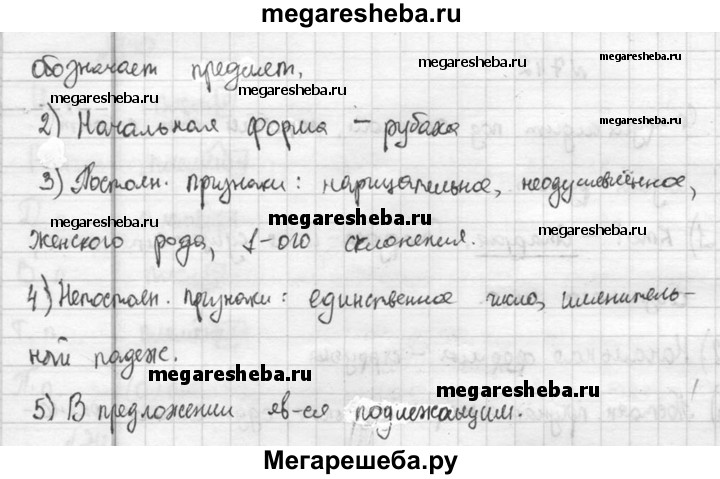 megaresheba.ru
обозначает предмет.
megaresheba.ru
megaresheba.ru
megaresheba.ru
megaresheba.ru
2) Начальная форма – рубаха
megaresheba.ru
3) Постоян. признаки: нарицательное, неодушевлённое,
megaresheba.ru
megaresheba.ru
megaresheba.ru
женского рода, 1-ого склонения.
4) Непостоян. признаки: единственное число, именитель-
ный падеж.
megaresheba.ru
megaresheba.ru
5) В предложении яв-ся подлежащим.
Мегарешеба.ру